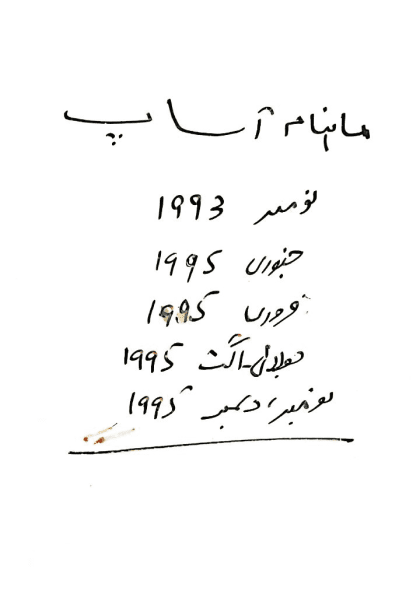 ماہنامہ آساپ
نومبر 1993
جنوری 1995
فروری 1995
جولائی-اگست 1995
نومبر، دسمبر 1995